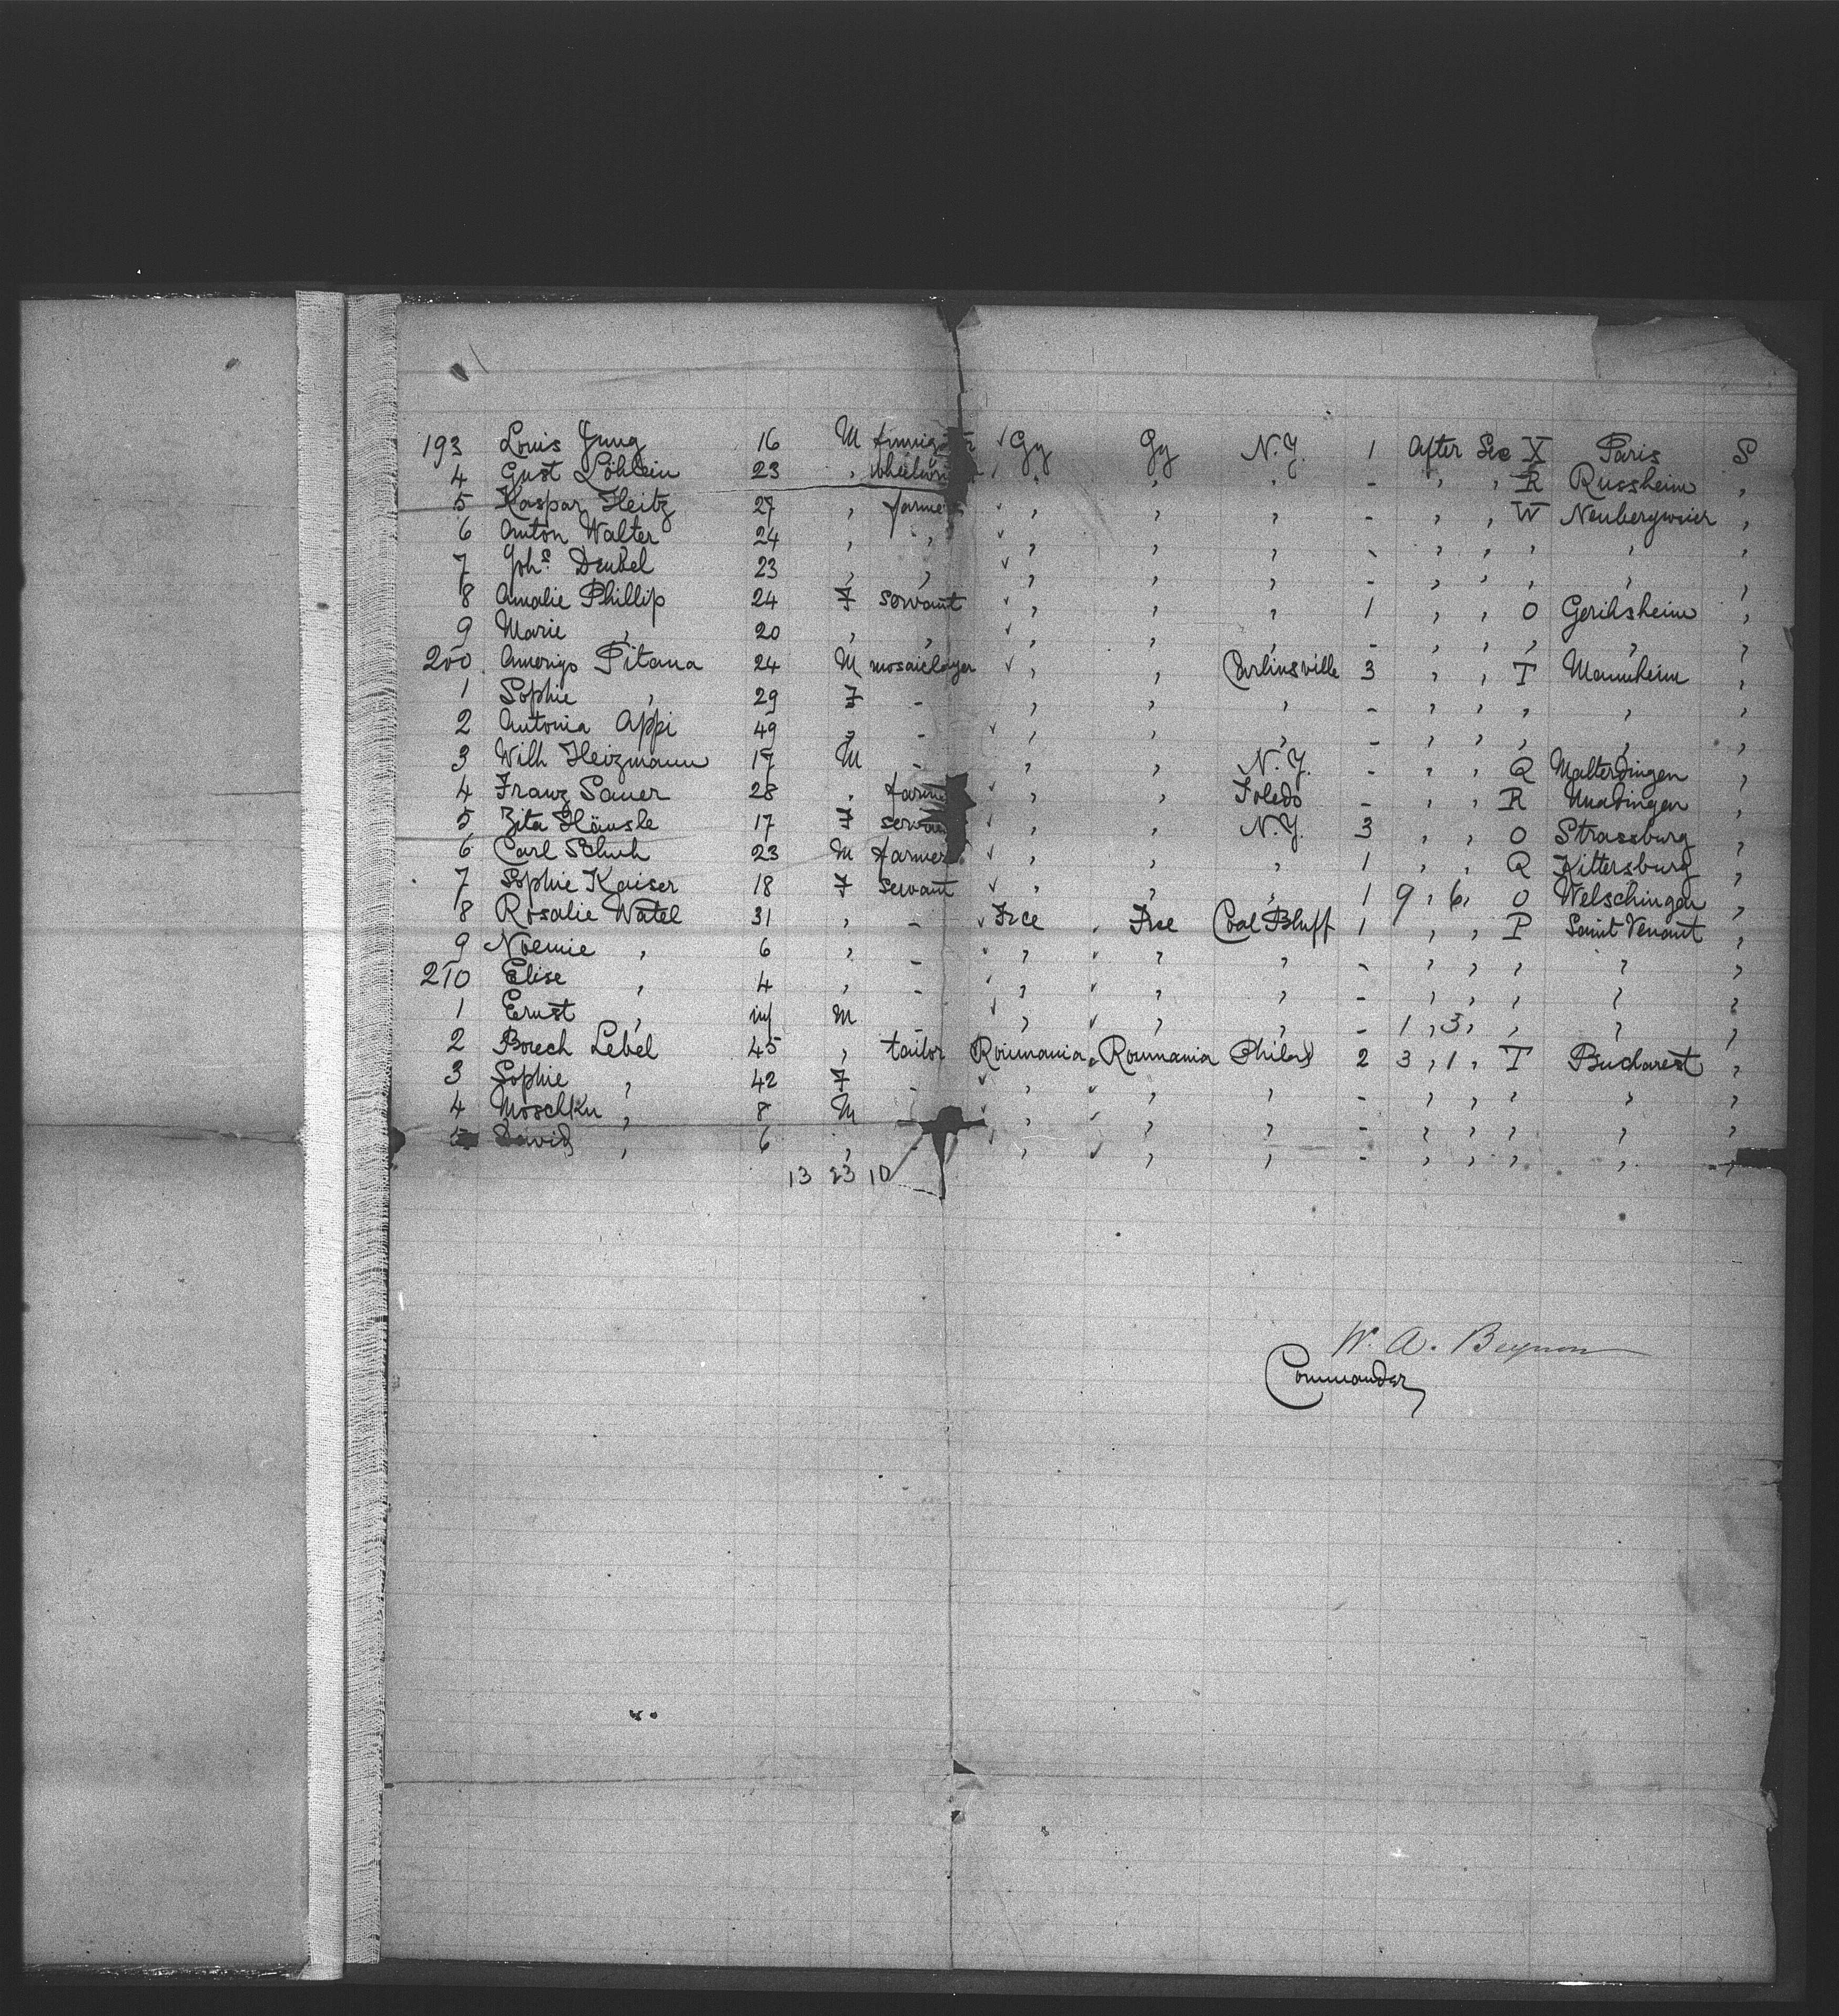 193 Louis Jung 16 M Gy Gy N.Y. 1 After See X Paris S
4 Gust Löhlein 23 , , , , - , , R Russheim ,
5 Kaspar Heitz 27 , farmer , , , - , , W Neubergweier ,
6 Anton Walter 24 , , , , , - , , , , ,
7 Johs. Deubel 23 , , , , , - , , , , ,
8 Amalie Phillip 24 F servant , , , 1 , , O Gerihsheim ,
9 Marie , 20 , , , , , - , , , , ,
200 Amerigo Pitana 24 M mosaiclayer , , Carlinsville 3 , , T Mannheim ,
1 Sophie , 29 F - , , , - , , , , ,
2 Antonia Appi 49 , - , , , - , , , , ,
3 Wilh Heizmann 17 M - , , N.Y. - , , Q Malterdingen ,
4 Franz Sauer 28 , farme , , Toledo - , , R ,
5 Zita Häusle 17 F serva , , N.Y. 3 , , O Strassburg ,
6 Carl Schuh 23 M farmer , , , 1 , , Q Kittersburg ,
7 Sophie Kaiser 18 F servant , , , 1 9 , 6 , O Welschingen ,
8 Rosalie Watel 31 , - Fce Fce Coal Bluff 1 , , P Saint Venant ,
9 Noemie , 6 , - , , , - , , , , ,
210 Elise , 4 , - , , , - , , , , ,
1 Ernst , inf M - , , , - 1 , 3 , , , ,
2 Borech Lebel 45 , tailor Roumania Roumania Philad 2 3 , 1 , T Bucharest ,
3 Sophie , 42 F - , , , - , , , , ,
4 Moschku , 8 M - , , , - , , , , ,
5 David , 6 , - , , , - , , , , ,
13 23 10
W. A. Beynon
Commander